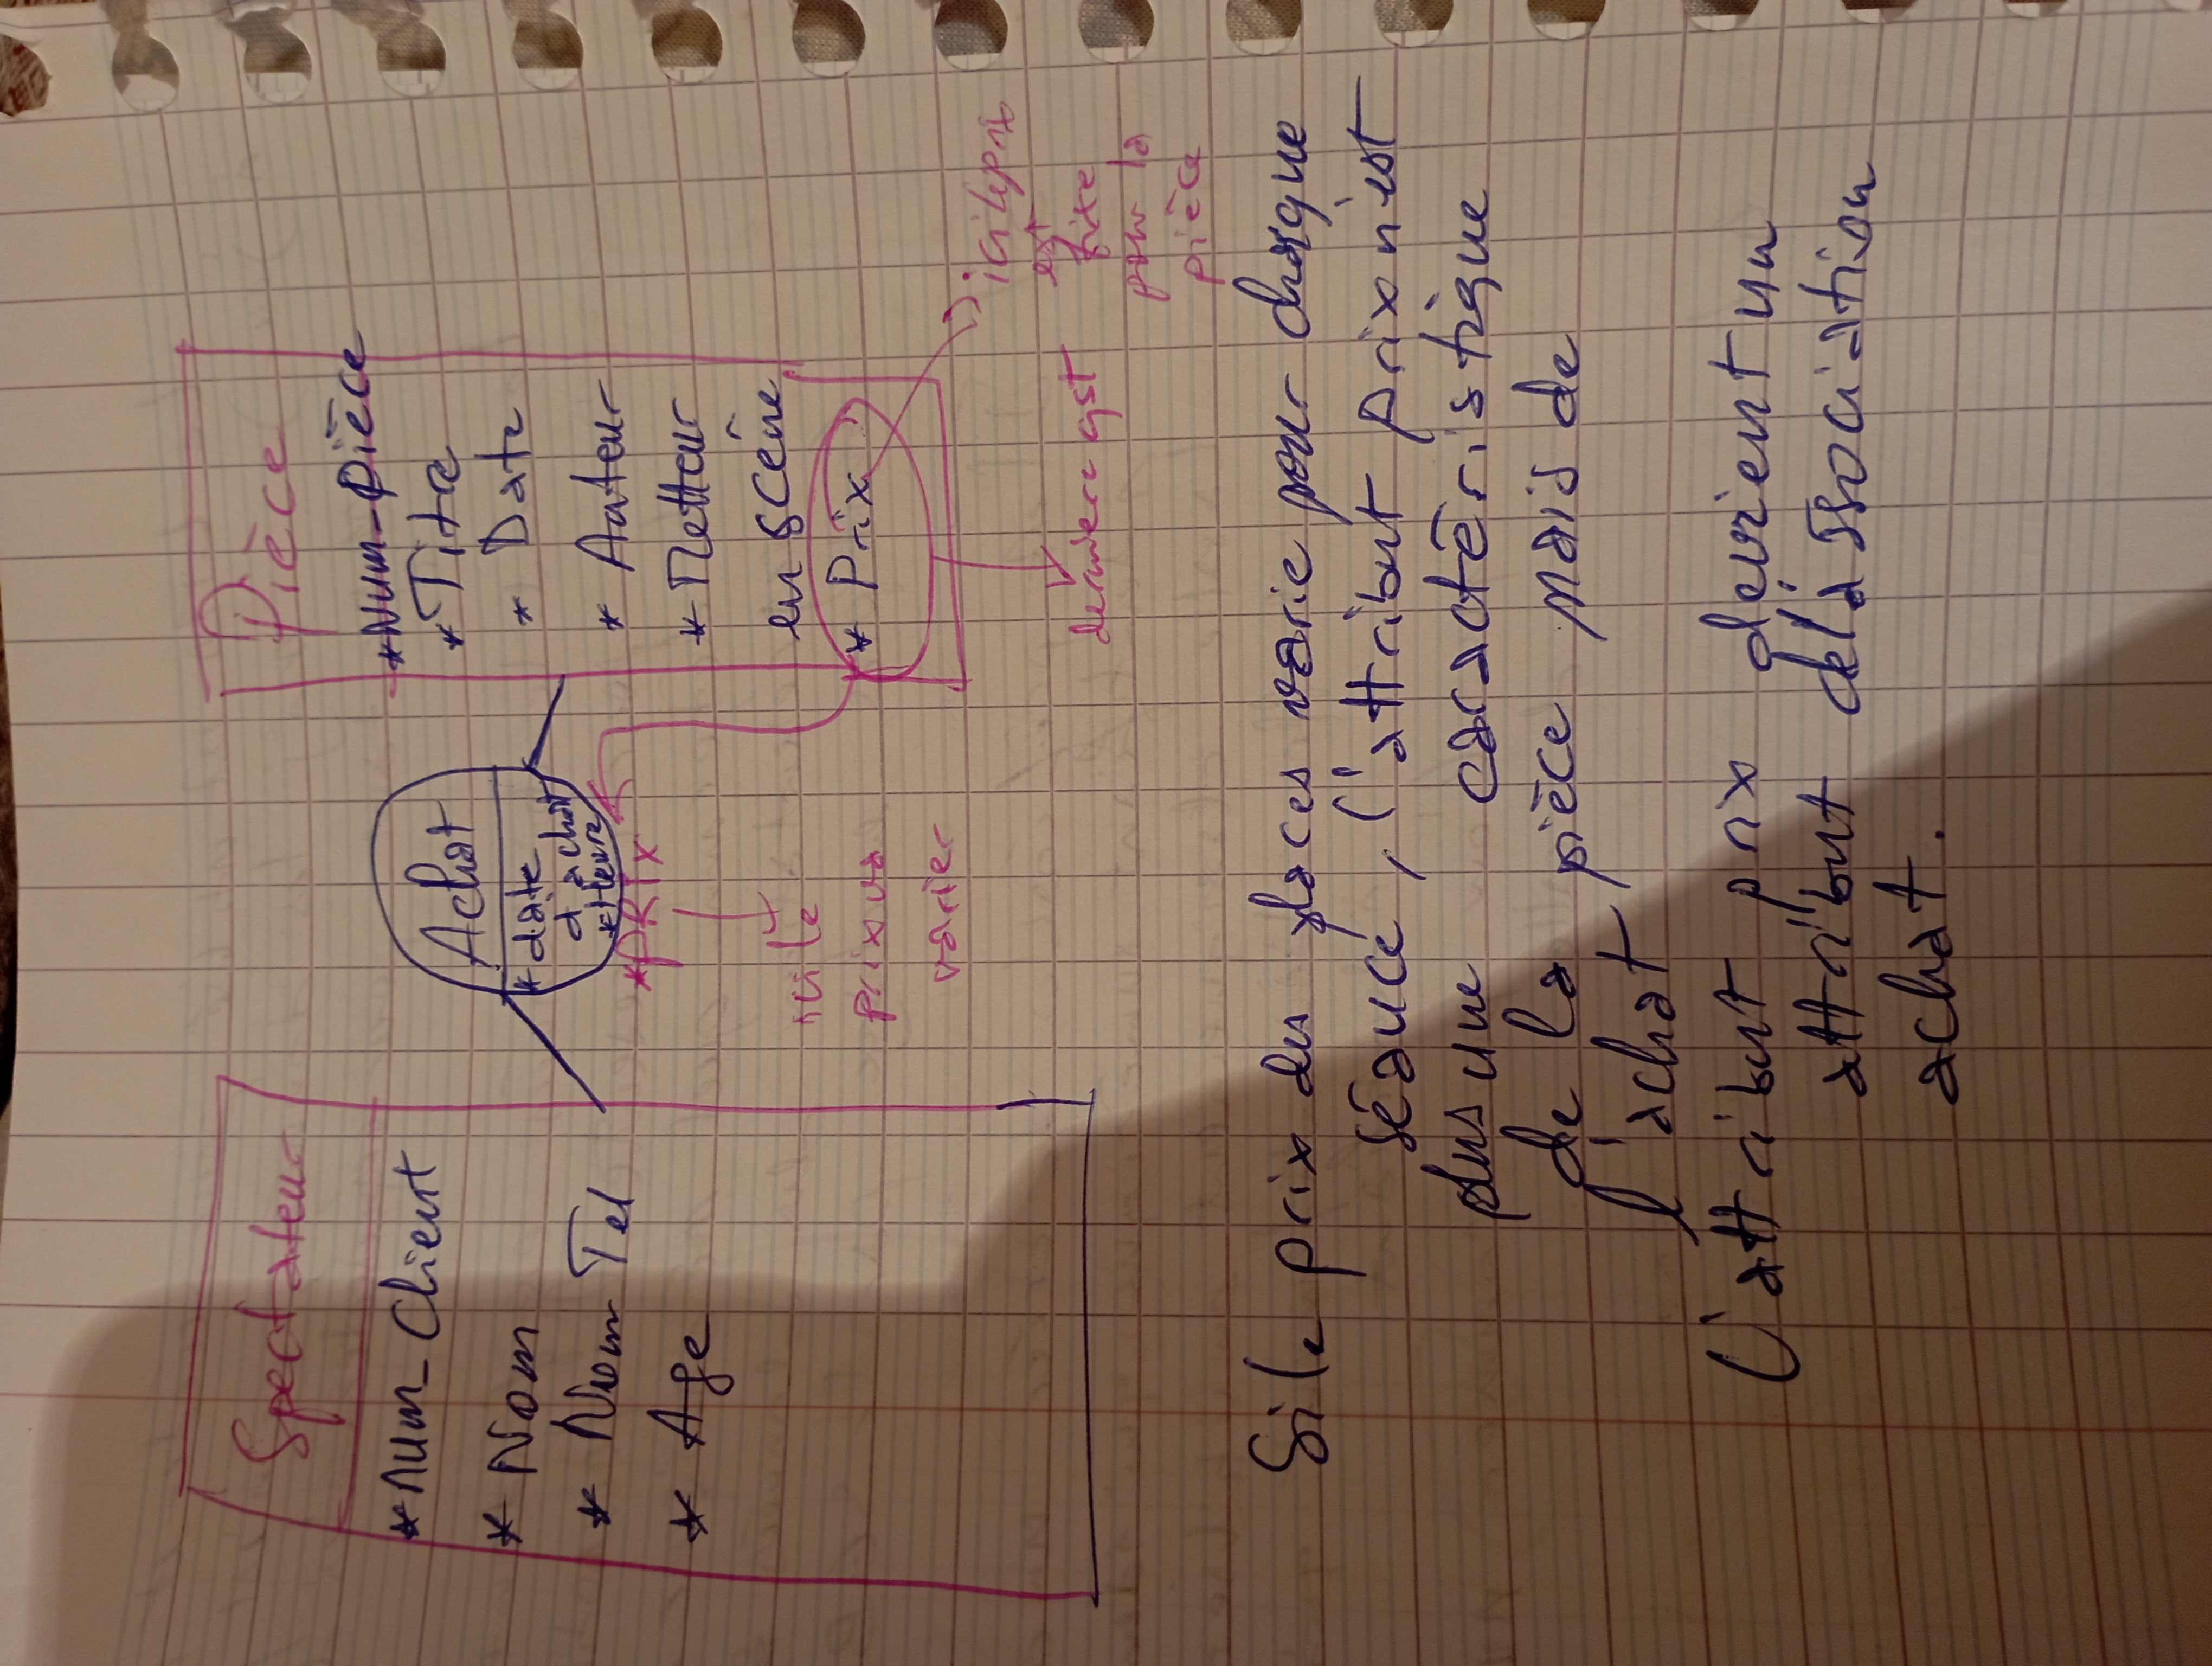 Spectateur
*Num_Client
* Nom
* Num Tel
* Age
Achat
* date
d'achat
*Heure
*PRIX
si le
prix va
varier
Pièce
*Num_Pièce
*Titre
* Date
* Auteur
* Metteur
en scène
* Prix
si le prix
est
fixe
pour la
pièce
Si le prix des places varie pour chaque
séance, l'attribut prix n'est
plus une caractéristique
de la pièce mais de
l'achat
L'attribut prix devient un
attribut de l'association
achat.